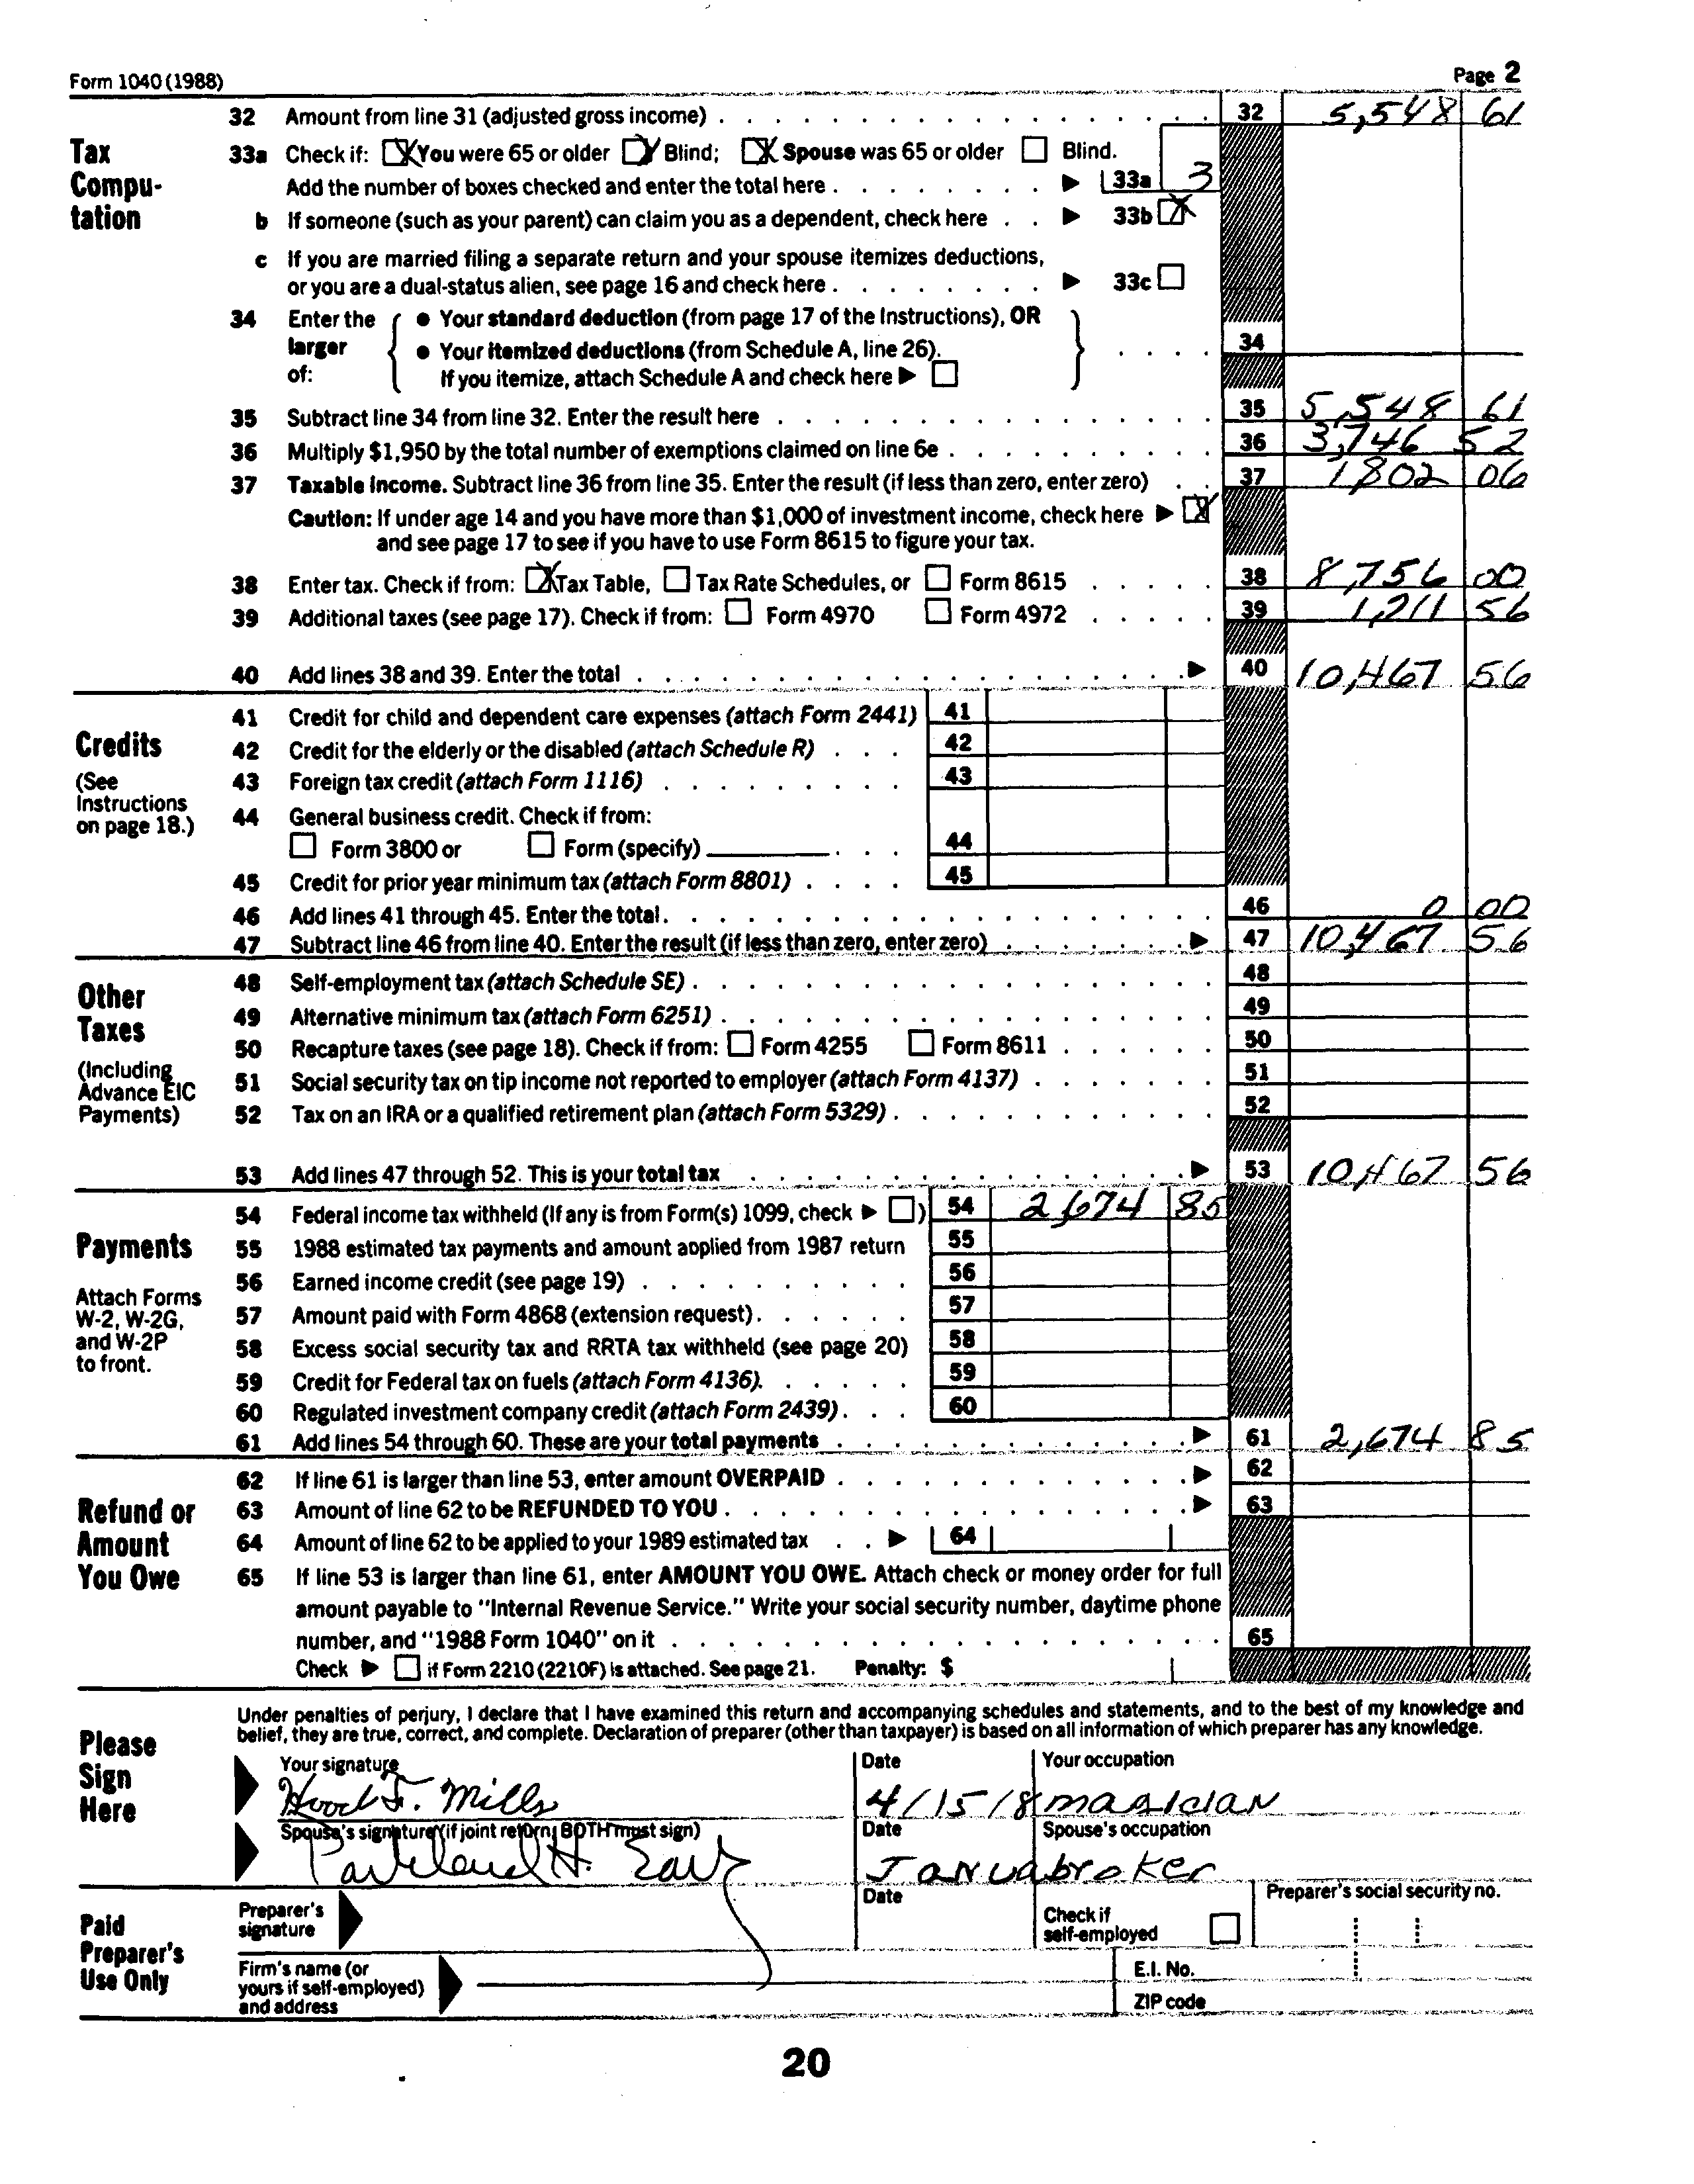 Form 1040 (1988) Page 2
32 Amount from line 31 (adjusted gross income) 32 5,548 61
Tax Computation
33a Check if: X You were 65 or older X Blind; X Spouse was 65 or older Blind.
Add the number of boxes checked and enter the total here ▶ 33a 3
b If someone (such as your parent) can claim you as a dependent, check here ▶ 33b X
c If you are married filing a separate return and your spouse itemizes deductions,
or you are a dual-status alien, see page 16 and check here ▶ 33c
34 Enter the larger of:
• Your standard deduction (from page 17 of the Instructions), OR
• Your itemized deductions (from Schedule A, line 26).
If you itemize, attach Schedule A and check here ▶
34
35 Subtract line 34 from line 32. Enter the result here 35 5,548 61
36 Multiply $1,950 by the total number of exemptions claimed on line 6e 36 3,746 52
37 Taxable income. Subtract line 36 from line 35. Enter the result (if less than zero, enter zero) 37 1802 06
Caution: If under age 14 and you have more than $1,000 of investment income, check here ▶ X
and see page 17 to see if you have to use Form 8615 to figure your tax.
38 Enter tax. Check if from: X Tax Table, Tax Rate Schedules, or Form 8615 38 8,756 00
39 Additional taxes (see page 17). Check if from: Form 4970 Form 4972 39 1,211 56
40 Add lines 38 and 39. Enter the total ▶ 40 10,467 56
Credits
(See Instructions on page 18.)
41 Credit for child and dependent care expenses (attach Form 2441) 41
42 Credit for the elderly or the disabled (attach Schedule R) 42
43 Foreign tax credit (attach Form 1116) 43
44 General business credit. Check if from:
Form 3800 or Form (specify) 44
45 Credit for prior year minimum tax (attach Form 8801) 45
46 Add lines 41 through 45. Enter the total. 46 0 00
47 Subtract line 46 from line 40. Enter the result (if less than zero, enter zero) ▶ 47 10,467 56
Other Taxes
(Including Advance EIC Payments)
48 Self-employment tax (attach Schedule SE) 48
49 Alternative minimum tax (attach Form 6251) 49
50 Recapture taxes (see page 18). Check if from: Form 4255 Form 8611 50
51 Social security tax on tip income not reported to employer (attach Form 4137) 51
52 Tax on an IRA or a qualified retirement plan (attach Form 5329) 52
53 Add lines 47 through 52. This is your total tax ▶ 53 10,467 56
Payments
Attach Forms W-2, W-2G, and W-2P to front.
54 Federal income tax withheld (If any is from Form(s) 1099, check ▶ ) 54 2,674 85
55 1988 estimated tax payments and amount applied from 1987 return 55
56 Earned income credit (see page 19) 56
57 Amount paid with Form 4868 (extension request) 57
58 Excess social security tax and RRTA tax withheld (see page 20) 58
59 Credit for Federal tax on fuels (attach Form 4136). 59
60 Regulated investment company credit (attach Form 2439) 60
61 Add lines 54 through 60. These are your total payments ▶ 61 2,674 85
Refund or Amount You Owe
62 If line 61 is larger than line 53, enter amount OVERPAID ▶ 62
63 Amount of line 62 to be REFUNDED TO YOU ▶ 63
64 Amount of line 62 to be applied to your 1989 estimated tax ▶ 64
65 If line 53 is larger than line 61, enter AMOUNT YOU OWE. Attach check or money order for full
amount payable to "Internal Revenue Service." Write your social security number, daytime phone
number, and "1988 Form 1040" on it 65
Check ▶ if Form 2210 (2210F) is attached. See page 21. Penalty: $
Please Sign Here
Under penalties of perjury, I declare that I have examined this return and accompanying schedules and statements, and to the best of my knowledge and
belief, they are true, correct, and complete. Declaration of preparer (other than taxpayer) is based on all information of which preparer has any knowledge.
Your signature Date Your occupation
Hood F. Mills 4/15/8 magician
Spouse's signature (if joint return, BOTH must sign) Date Spouse's occupation
H. broker
Paid Preparer's Use Only
Preparer's signature Date Check if self-employed Preparer's social security no.
Firm's name (or yours if self-employed) and address E.I. No.
ZIP code
20